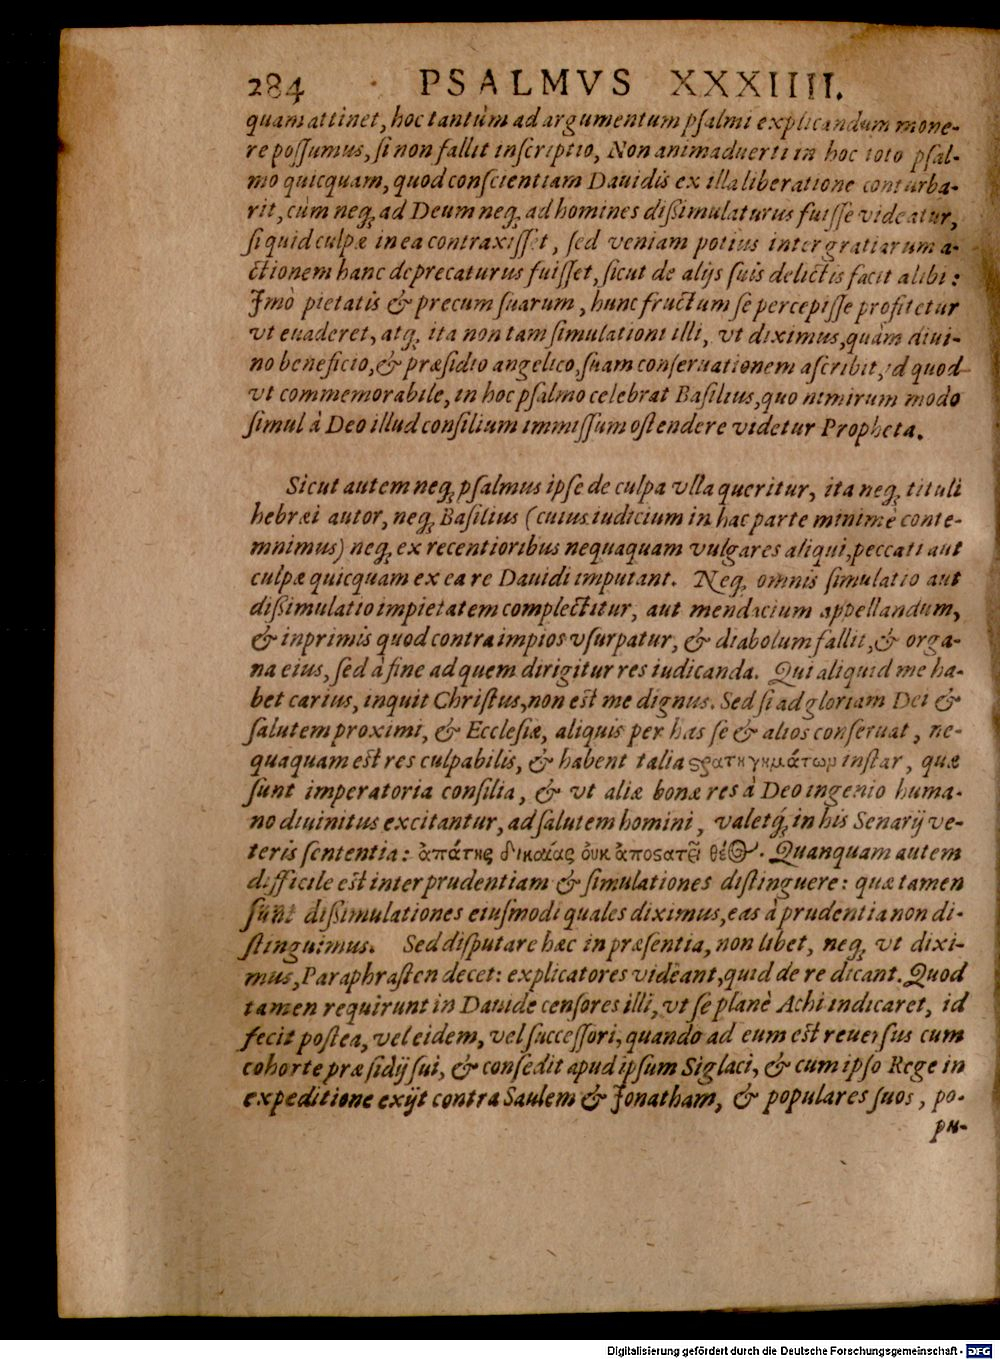 284 PSALMVS XXXIIII.
quam attinet, hoc tantùm ad argumentum psalmi explicandum mone-
re possumus, si non fallit inscriptio, Non animaduerti in hoc toto psal-
mo quicquam, quod conscientiam Dauidis ex illa liberatione conturba-
rit, cùm neq; ad Deum neq; ad homines dißimulaturus fuisse videatur,
si quid culpæ in ea contraxisset, sed veniam potius inter gratiarum a-
ctionem hanc deprecaturus fuisset, sicut de alijs suis delictis facit alibi:
Imò pietatis & precum suarum, hunc fructum se percepisse profitetur
vt euaderet, atq; ita non tam simulationi illi, vt diximus, quàm diui-
no beneficio, & præsidio angelico, suam conseruationem ascribit, id quod
vt commemorabile, in hoc psalmo celebrat Basilius, quo nimirum modo
simul à Deo illud consilium immissum ostendere videtur Propheta.
Sicut autem neq; psalmus ipse de culpa vlla queritur, ita neq; tituli
hebræi autor, neq; Basilius (cuius iudicium in hac parte minimè conte-
mnimus) neq; ex recentioribus nequaquam vulgares aliqui, peccati aut
culpæ quicquam ex ea re Dauidi imputant. Neq; omnis simulatio aut
dißimulatio impietatem complectitur, aut mendacium appellandum,
& inprimis quod contra impios vsurpatur, & diabolum fallit, & orga-
na eius, sed à fine ad quem dirigitur res iudicanda. Qui aliquid me ha-
bet carius, inquit Christus, non est me dignus. Sed si ad gloriam Dei &
salutem proximi, & Ecclesiæ, aliquis per has se & alios conseruat, ne-
quaquam est res culpabilis, & habent talia ϛρατηγημάτωμ instar, quæ
sunt imperatoria consilia, & vt aliæ bonæ res à Deo ingenio huma-
no diuinitus excitantur, ad salutem homini, valetq; in his Senarij ve-
teris sententia: ἀπάτης δικαίας ὀυκ ἀποϛατεῖ θεός. Quanquam autem
difficile est inter prudentiam & simulationes distinguere: quæ tamen
sunt dißimulationes eiusmodi quales diximus, eas à prudentia non di-
stinguimus. Sed disputare hæc in præsentia, non libet, neq; vt dixi-
mus, Paraphrasten decet: explicatores videant, quid de re dicant. Quod
tamen requirunt in Dauide censores illi, vt se planè Achi indicaret, id
fecit postea, vel eidem, vel successori, quando ad eum est reuersus cum
cohorte præsidij sui, & consedit apud ipsum Siglaci, & cum ipso Rege in
expeditione exijt contra Saulem & Jonatham, & populares suos, po-
pu-
Digitalisierung gefördert durch die Deutsche Forschungsgemeinschaft - DFG